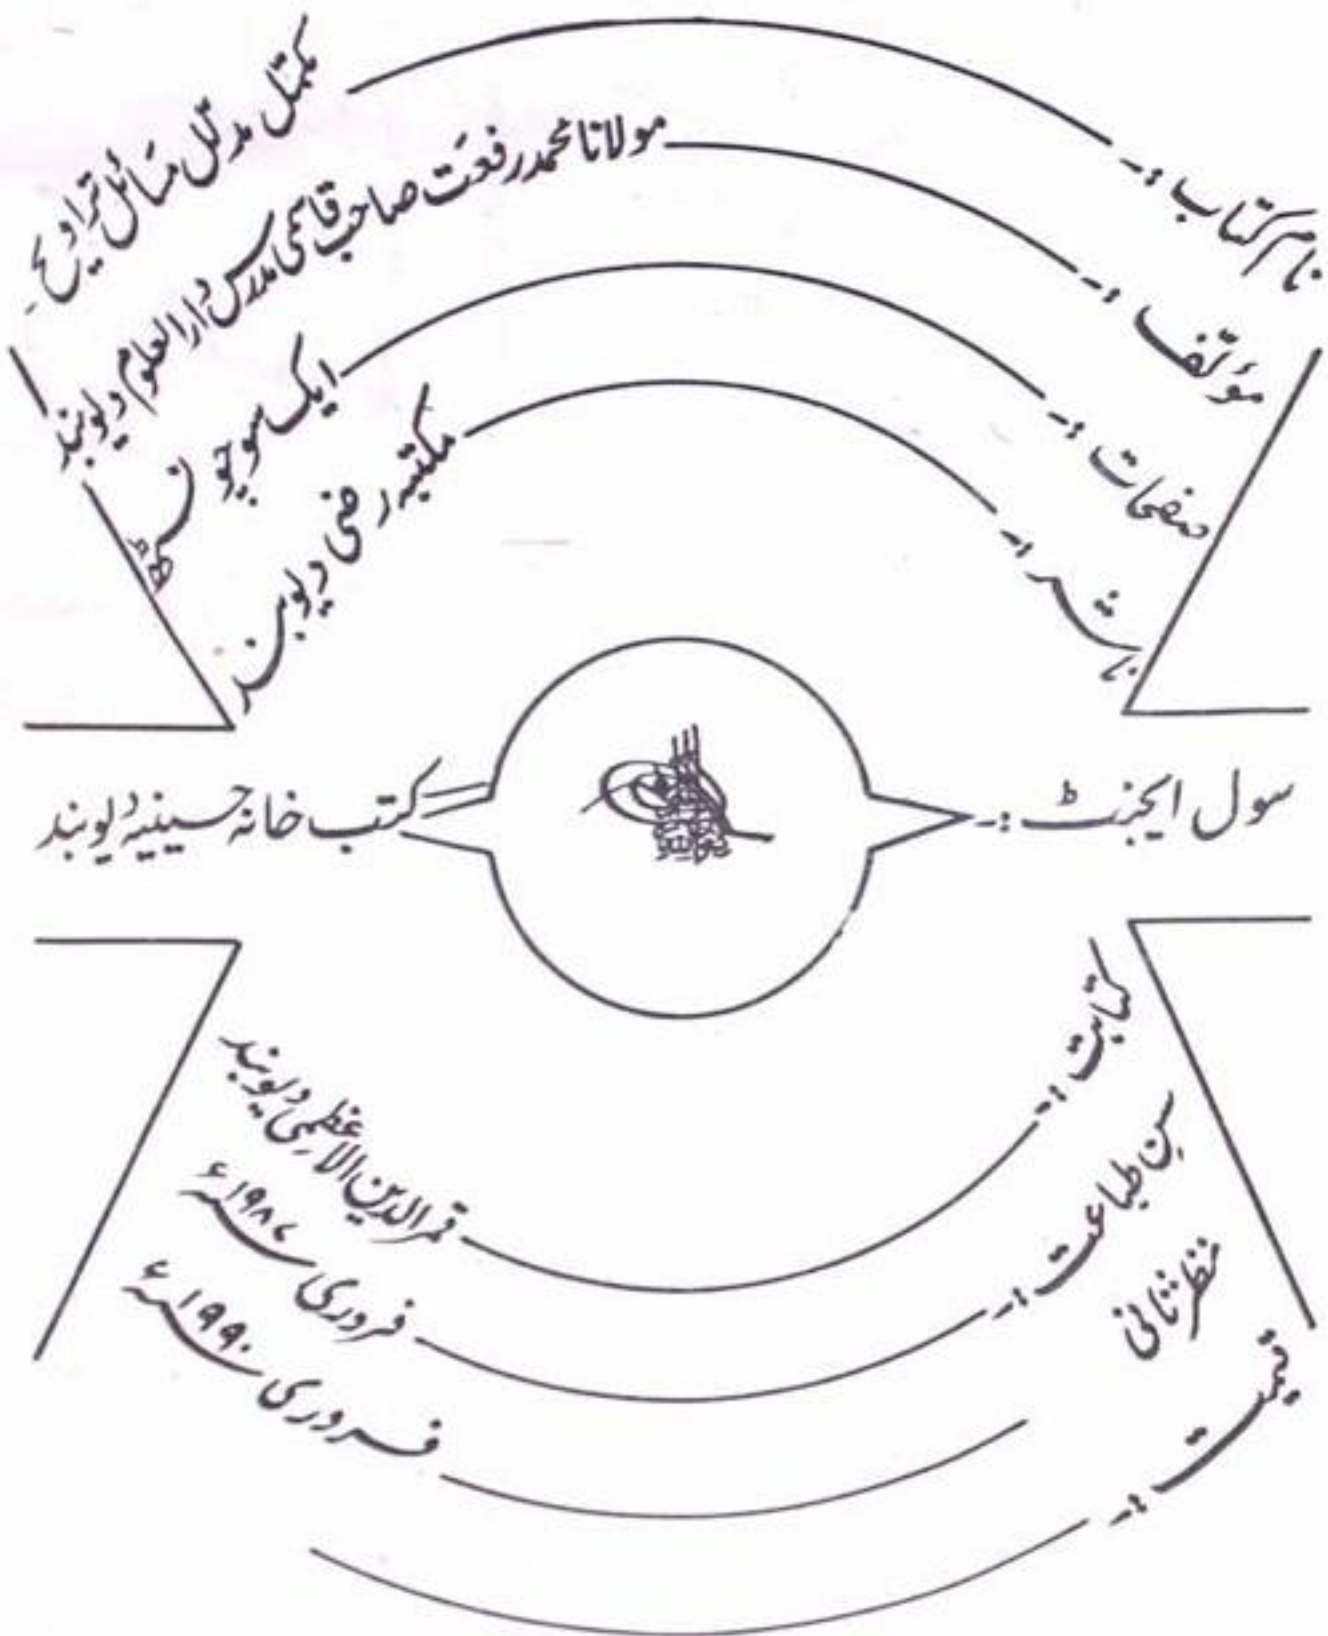 نام کتاب :- مکمل مدلل مسائل تراویح
مؤلف :- مولانا محمد رفعت صاحب قاسمی مدرس دارالعلوم دیوبند
صفحات :- ایک سو چونسٹھ
ناشر :- مکتبہ رضی دیوبند
سول ایجنٹ :- کتب خانہ حسینیہ دیوبند
کتابت :- قمر الدین الاعظمی دیوبند
سن طباعت :- فروری ۱۹۸۷ء
نظر ثانی فروری ۱۹۹۰ء
قیمت :-